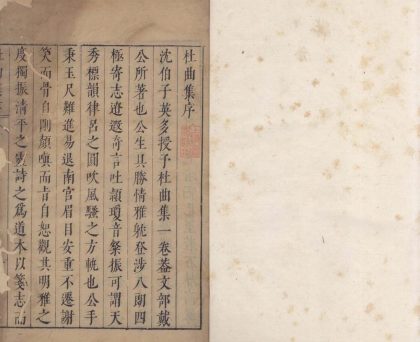 杜曲集序
沈伯子英多授予杜曲集一卷葢文部戴
公所著也公生具勝情雅躭登涉八閎四
極寄志遼遐奇言吐頴瓊音粲振可謂天
秀標韻律呂之圓吹風騷之方軌也公手
秉玉尺難進易退南宫眉目安重不遷謝
笑而骨自剛顔喚而青自恕觀其明雅之
度獨振清平之
詩之爲道本以箋志而